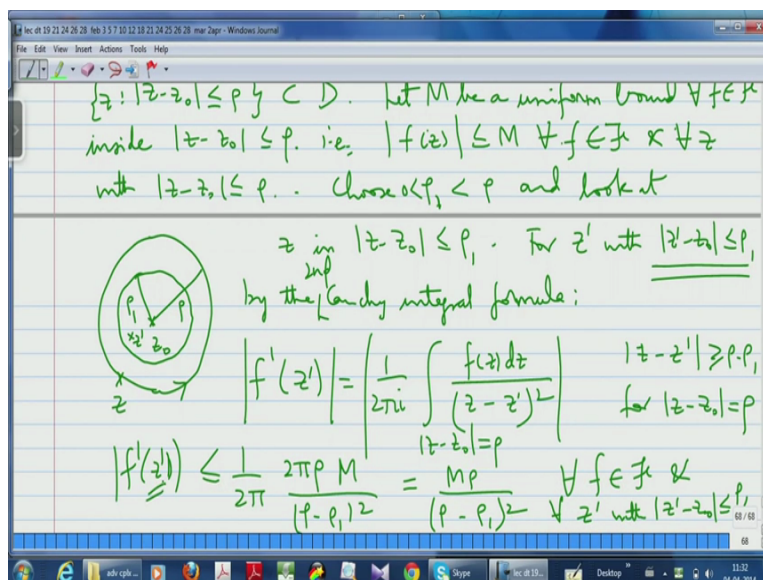 lec dt 19 21 24 26 28 feb 3 5 7 10 12 18 21 24 25 26 28 mar 2apr - Windows Journal
File Edit View Insert Actions Tools Help
{z : |z-z₀| ≤ ρ} ⊂ D. Let M be a uniform bound ∀ f ∈ ℱ
inside |z-z₀| ≤ ρ. i.e., |f(z)| ≤ M ∀ f ∈ ℱ & ∀ z
with |z-z₀| ≤ ρ. Choose 0<ρ₁ < ρ and look at
z in |z-z₀| ≤ ρ₁. For z' with |z'-z₀| ≤ ρ₁
by the 2nd Cauchy integral formula:
ρ₁ ρ
z' z₀
z
|f'(z')| = |1/2πi ∫_{|z-z₀|=ρ} f(z)dz/(z-z')²| |z-z'| ≥ ρ-ρ₁
for |z-z₀|=ρ
|f'(z')| ≤ 1/2π 2πρ M/(ρ-ρ₁)² = Mρ/(ρ-ρ₁)² ∀ f ∈ ℱ &
∀ z' with |z'-z₀| ≤ ρ₁
68 / 68
68
adv cplx ...
Skype
lec dt 19...
Desktop
11:32
04-04-2014